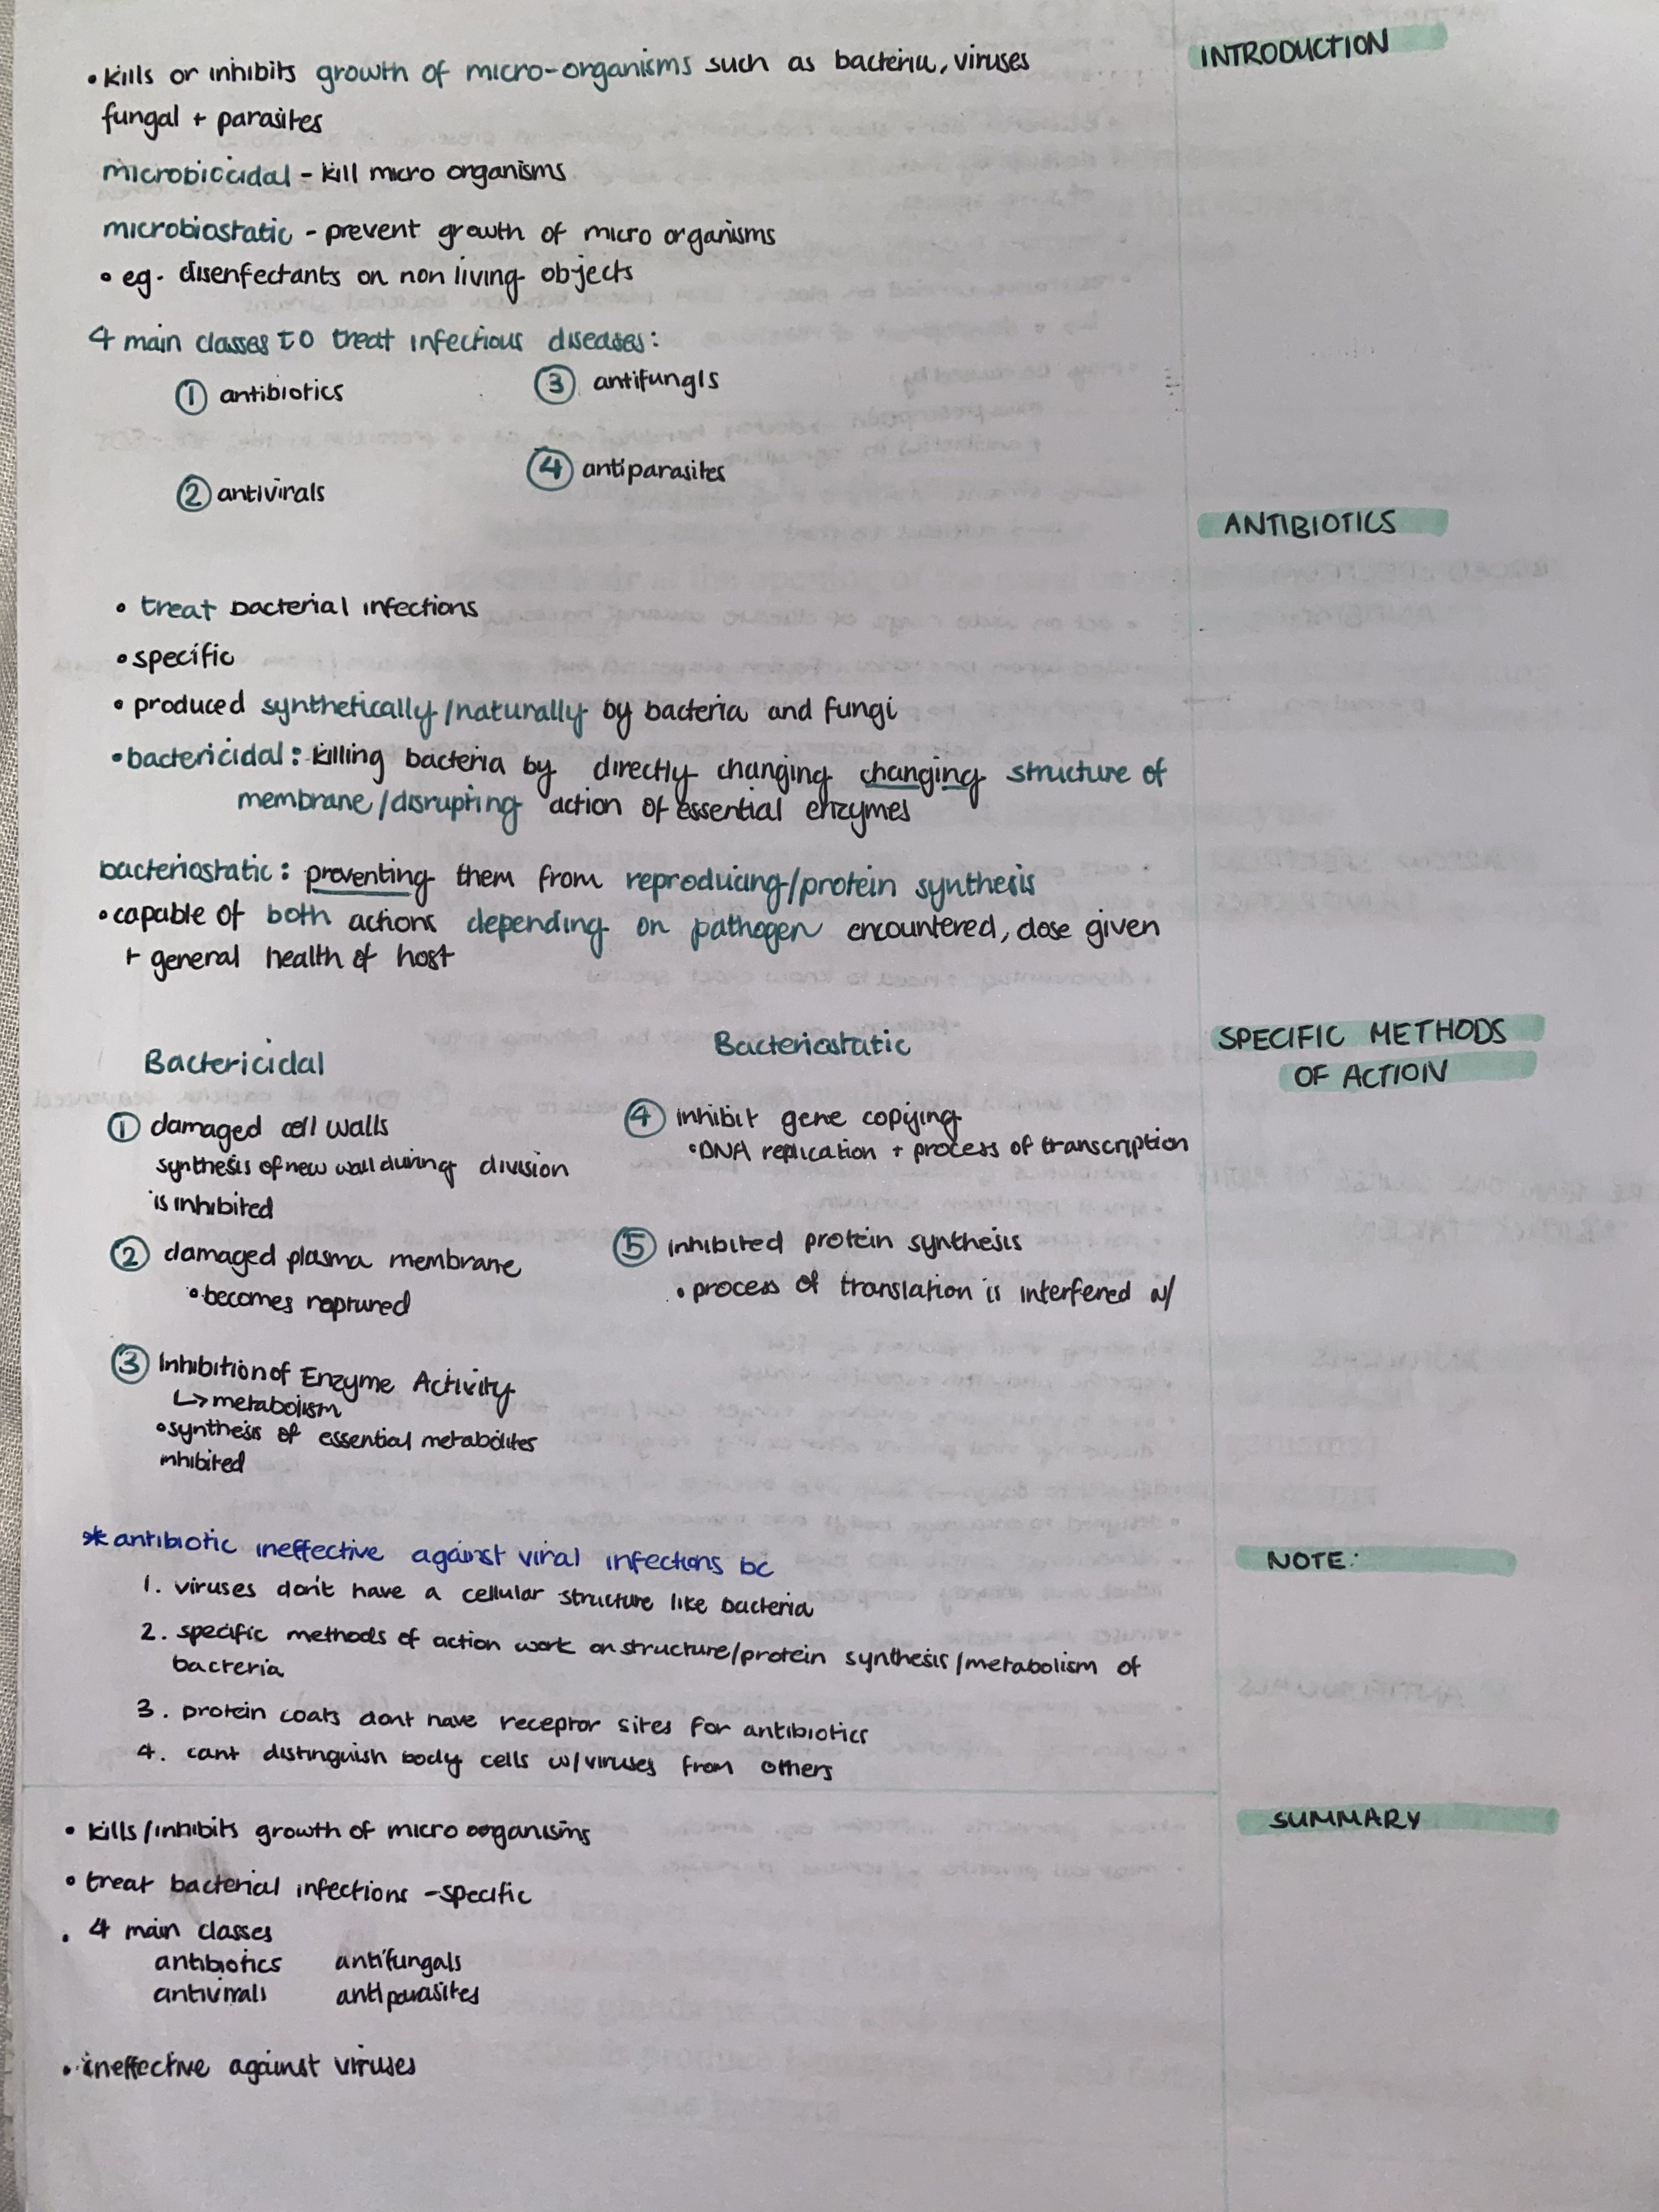 INTRODUCTION
• kills or inhibits growth of micro-organisms such as bacteria, viruses
fungal + parasites
microbiocidal - kill micro organisms
microbiostatic - prevent growth of micro organisms
• eg. disenfectants on non living objects
4 main classes to treat infectious diseases:
① antibiotics
② antivirals
③ antifungls
④ antiparasites
ANTIBIOTICS
• treat bacterial infections
• specific
• produced synthetically/naturally by bacteria and fungi
• bactericidal: killing bacteria by directly changing changing structure of
membrane/disrupting action of essential enzymes
bacteriostatic: preventing them from reproducing/protein synthesis
• capable of both actions depending on pathogen encountered, dose given
+ general health of host
SPECIFIC METHODS
OF ACTION
Bactericidal
① damaged cell walls
synthesis of new wall during division
is inhibited
② damaged plasma membrane
• becomes raptured
③ Inhibition of Enzyme Activity
↳ metabolism
• synthesis of essential metabolites
inhibited
Bacteriostatic
④ inhibit gene copying
• DNA replication + process of transcription
⑤ inhibited protein synthesis
• process of translation is interfered w/
NOTE:
* antibiotic ineffective against viral infections bc
1. viruses don't have a cellular structure like bacteria
2. specific methods of action work on structure/protein synthesis/metabolism of
bacteria
3. protein coats dont have receptor sites for antibiotics
4. cant distinguish body cells w/viruses from others
SUMMARY
• kills/inhibits growth of micro organisms
• treat bacterial infections - specific
• 4 main classes
antibiotics antifungals
antivirals antiparasites
• ineffective against viruses